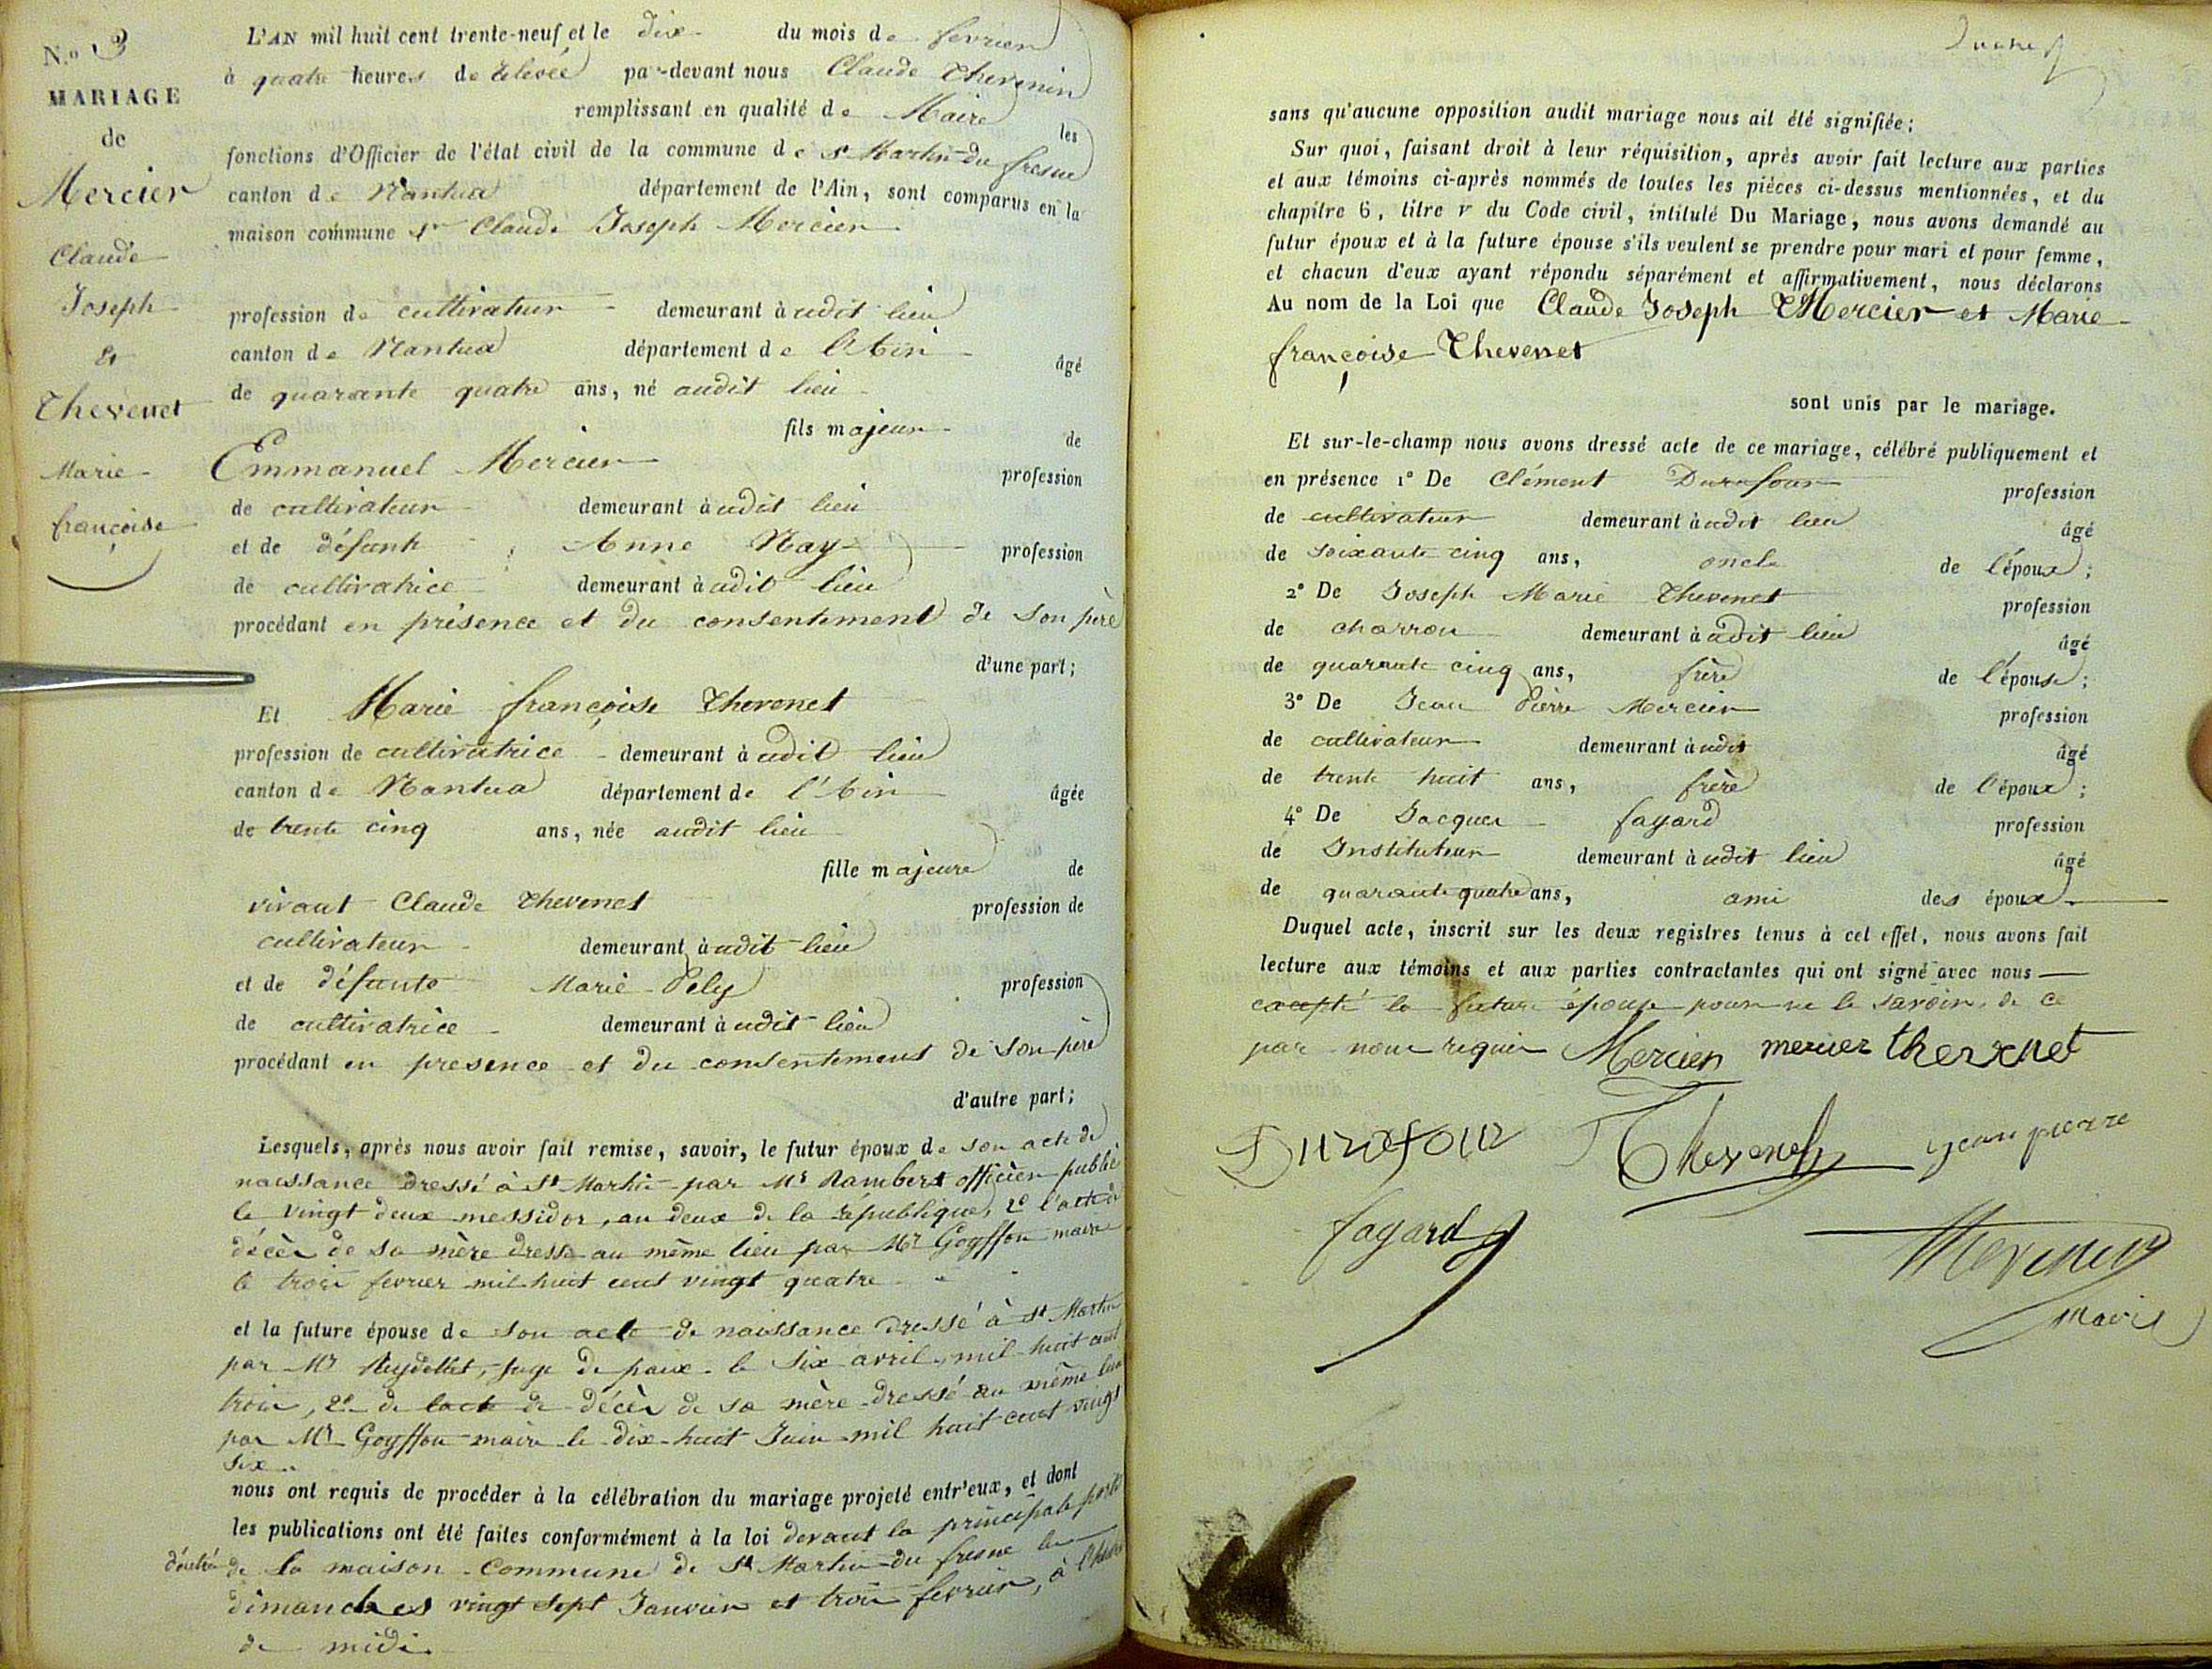 N.o 3
MARIAGE
de
Mercier
Claude
Joseph
Et
Thevenet
Marie
françoise
L'AN mil huit cent trente-neuf et le dix du mois de fevrier
à quatre heures de relevée par-devant nous Claude Thevenin
remplissant en qualité de Maire les
fonctions d'Officier de l'état civil de la commune de St Martin du fresne
canton de Nantua département de l'Ain, sont comparus en la
maison commune Sr Claude Joseph Mercier
profession de cultivateur demeurant à udit lieu
canton de Nantua département de l'Ain âgé
de quarante quatre ans, né audit lieu
fils majeur de
Emmanuel Mercier profession
de cultivateur demeurant à udit lieu
et de défunte Anne Nay profession
de cultivatrice demeurant à udit lieu
procédant en présence et du consentement de son père
d'une part;
Et Marie françoise Thevenet
profession de cultivatrice demeurant à udit lieu
canton de Nantua département de l'Ain âgée
de trente cinq ans, née audit lieu
fille majeure de
vivant Claude Thevenet profession de
cultivateur demeurant à udit lieu
et de défunte Marie Pely profession
de cultivatrice demeurant à udit lieu
procédant en presence et du consentement de son père
d'autre part;
Lesquels, après nous avoir fait remise, savoir, le futur époux de son acte de
naissance dressé à St Martin par Mr Rambert officier public
le vingt deux messidor, an deux de la république, 2o l'acte de
décès de sa mère dressé au même lieu par Mr Goyffon maire
le trois fevrier mil huit cent vingt quatre
et la future épouse de son acte de naissance dressé à St Martin
par Mr Reydellet, juge de paix le six avril mil huit cent
trois, 2o de lacte de décès de sa mère dressé au même lieu
par Mr Goyffon maire le dix-huit Juin mil huit cent vingt
six
nous ont requis de procéder à la célébration du mariage projeté entr'eux, et dont
les publications ont été faites conformément à la loi devant la principale porte
d'entrée de la maison commune de St Martin du fresne les
dimanches vingt sept Janvier et trois fevrier, à l'heure
de midi
sans qu'aucune opposition audit mariage nous ait été signifiée;
Sur quoi, faisant droit à leur réquisition, après avoir fait lecture aux parties
et aux témoins ci-après nommés de toutes les pièces ci-dessus mentionnées, et du
chapitre 6, titre v du Code civil, intitulé Du Mariage, nous avons demandé au
futur époux et à la future épouse s'ils veulent se prendre pour mari et pour femme,
et chacun d'eux ayant répondu séparément et affirmativement, nous déclarons
Au nom de la Loi que Claude Joseph Mercier et Marie
françoise Thevenet
sont unis par le mariage.
Et sur-le-champ nous avons dressé acte de ce mariage, célébré publiquement et
en présence 1o De Clément Durafour profession
de cultivateur demeurant à udit lieu âgé
de soixante cinq ans, oncle de l'époux;
2o De Joseph Marie Thevenet profession
de charron demeurant à udit lieu âgé
de quarante cinq ans, frère de l'épouse;
3o De Jean Pierre Mercier profession
de cultivateur demeurant à udit âgé
de trente huit ans, frère de l'époux;
4o De Jacques fayard profession
de Instituteur demeurant à udit lieu âgé
de quarante quatre ans, ami des époux
Duquel acte, inscrit sur les deux registres tenus à cet effet, nous avons fait
lecture aux témoins et aux parties contractantes qui ont signé avec nous
excepté la future épouse pour ne le savoir, de ce
par nous requis Mercier mercier thevenet
Durafour Thevenet jean pierre
fayard Thevenin
Maire